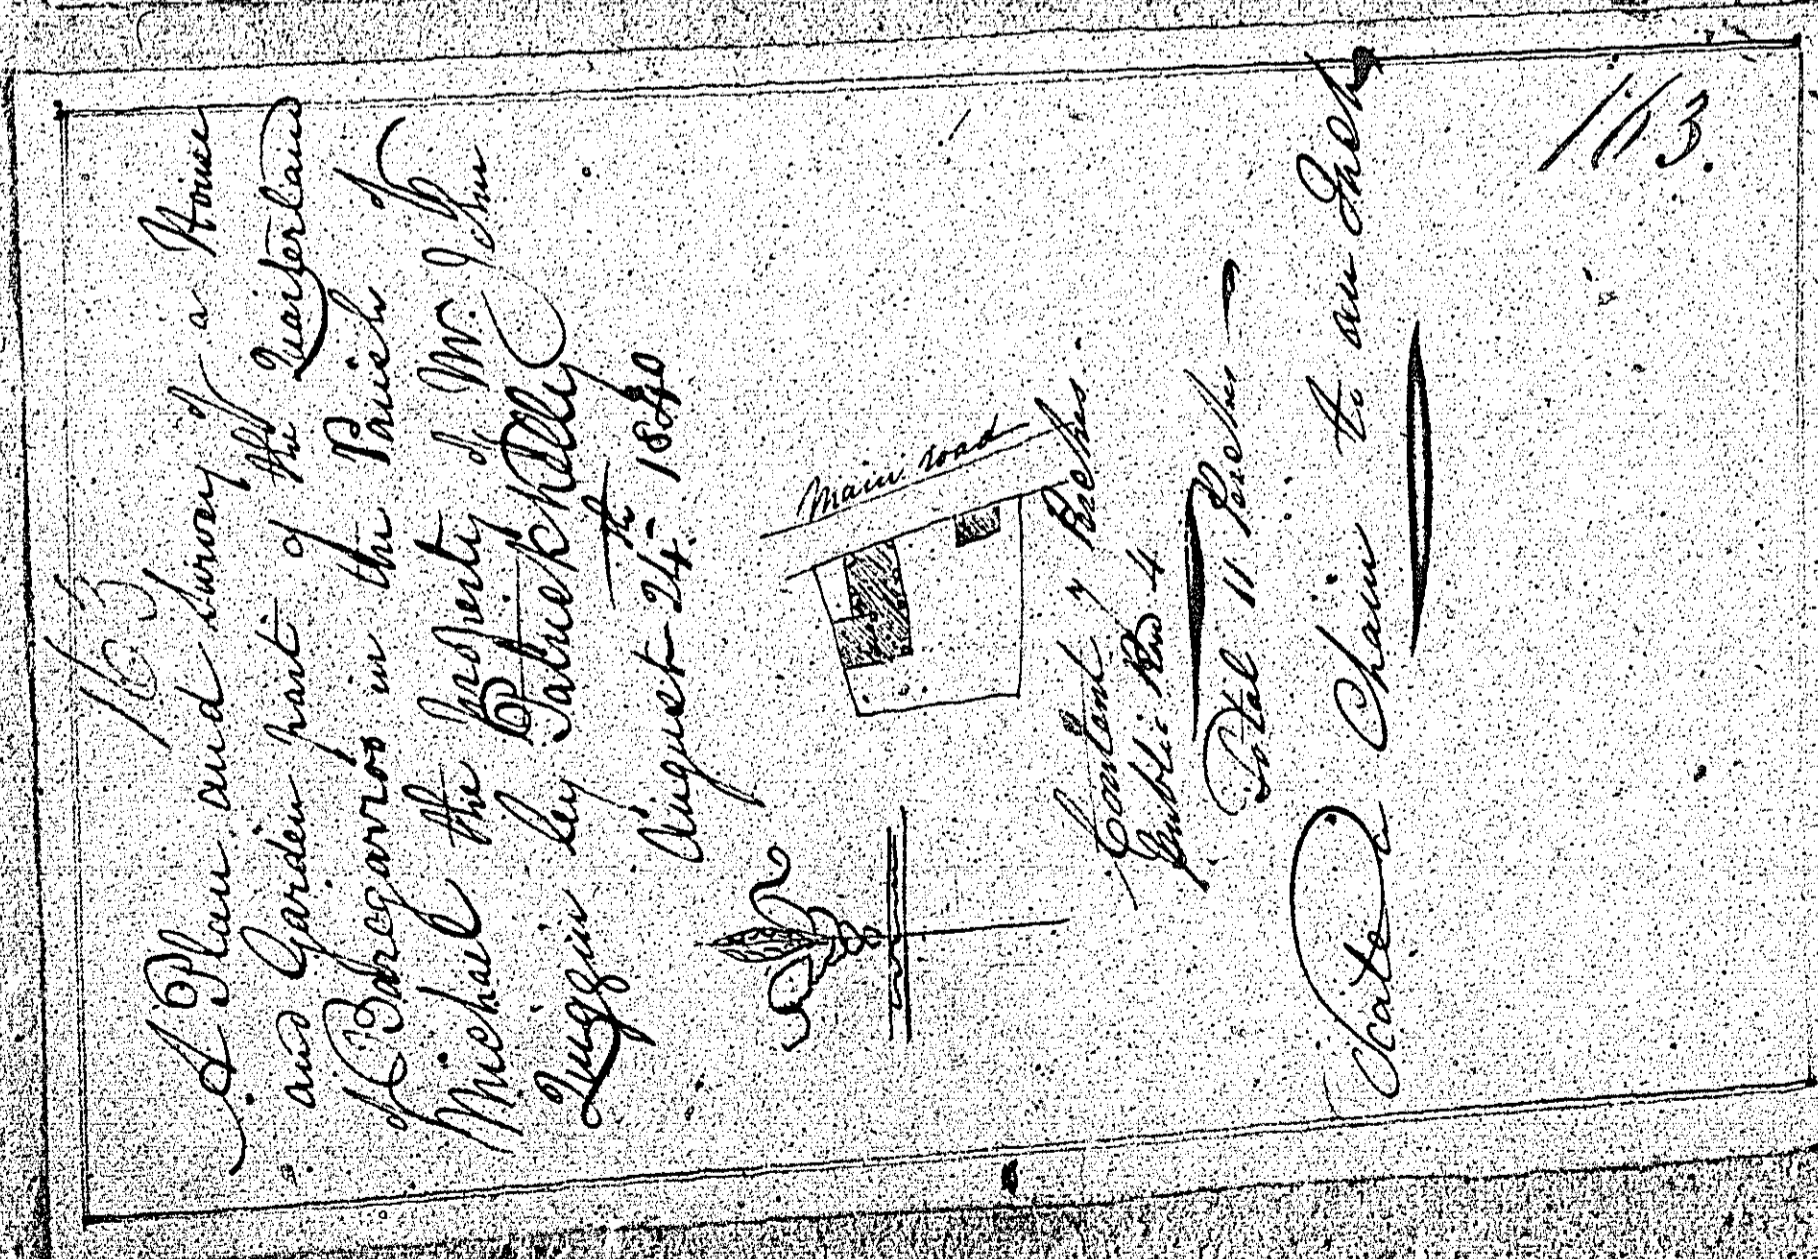 163
A Plan and Survey of a House
and Garden part of the Quarterland
of Baregarrow in the Parish of
Michael the property of Mr. John
Quggin by Patrick Kelly
August 24th 1840
Main road
Content 7 Perches.
Public Road 4
Total 11 Perches
Scale a Chain to an Inch
113.